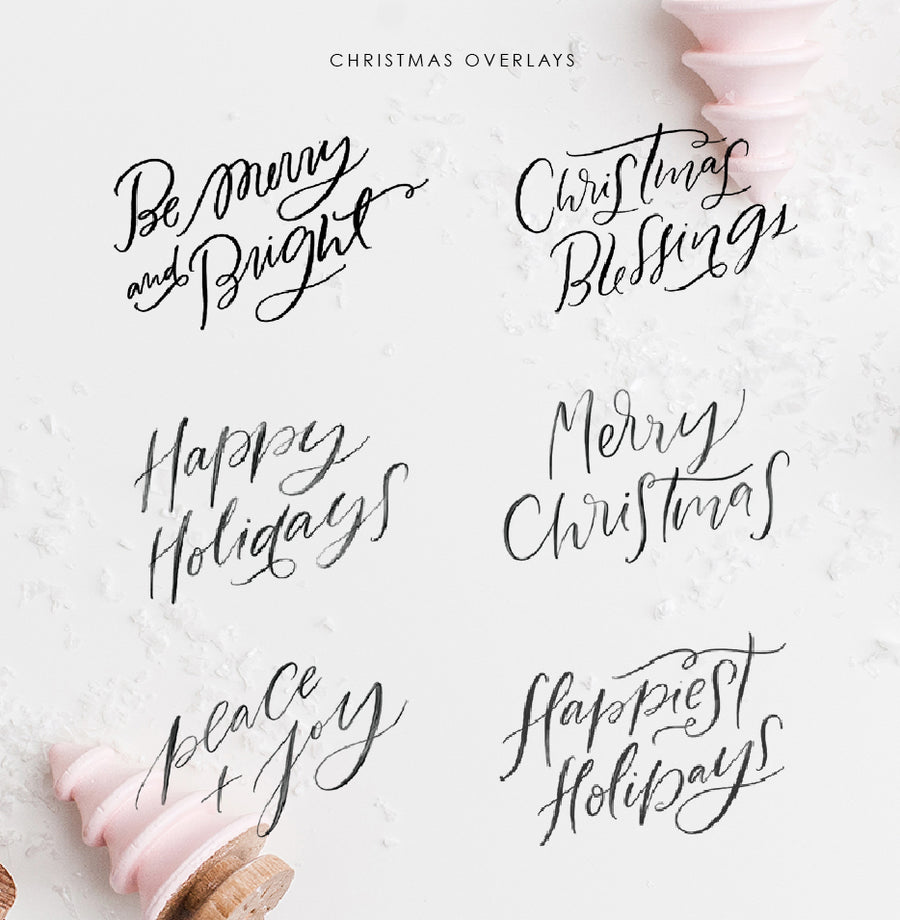 CHRISTMAS OVERLAYS
Be Merry
and Bright
Christmas
Blessings
Happy
Holidays
Merry
Christmas
peace
+ joy
Happiest
Holidays